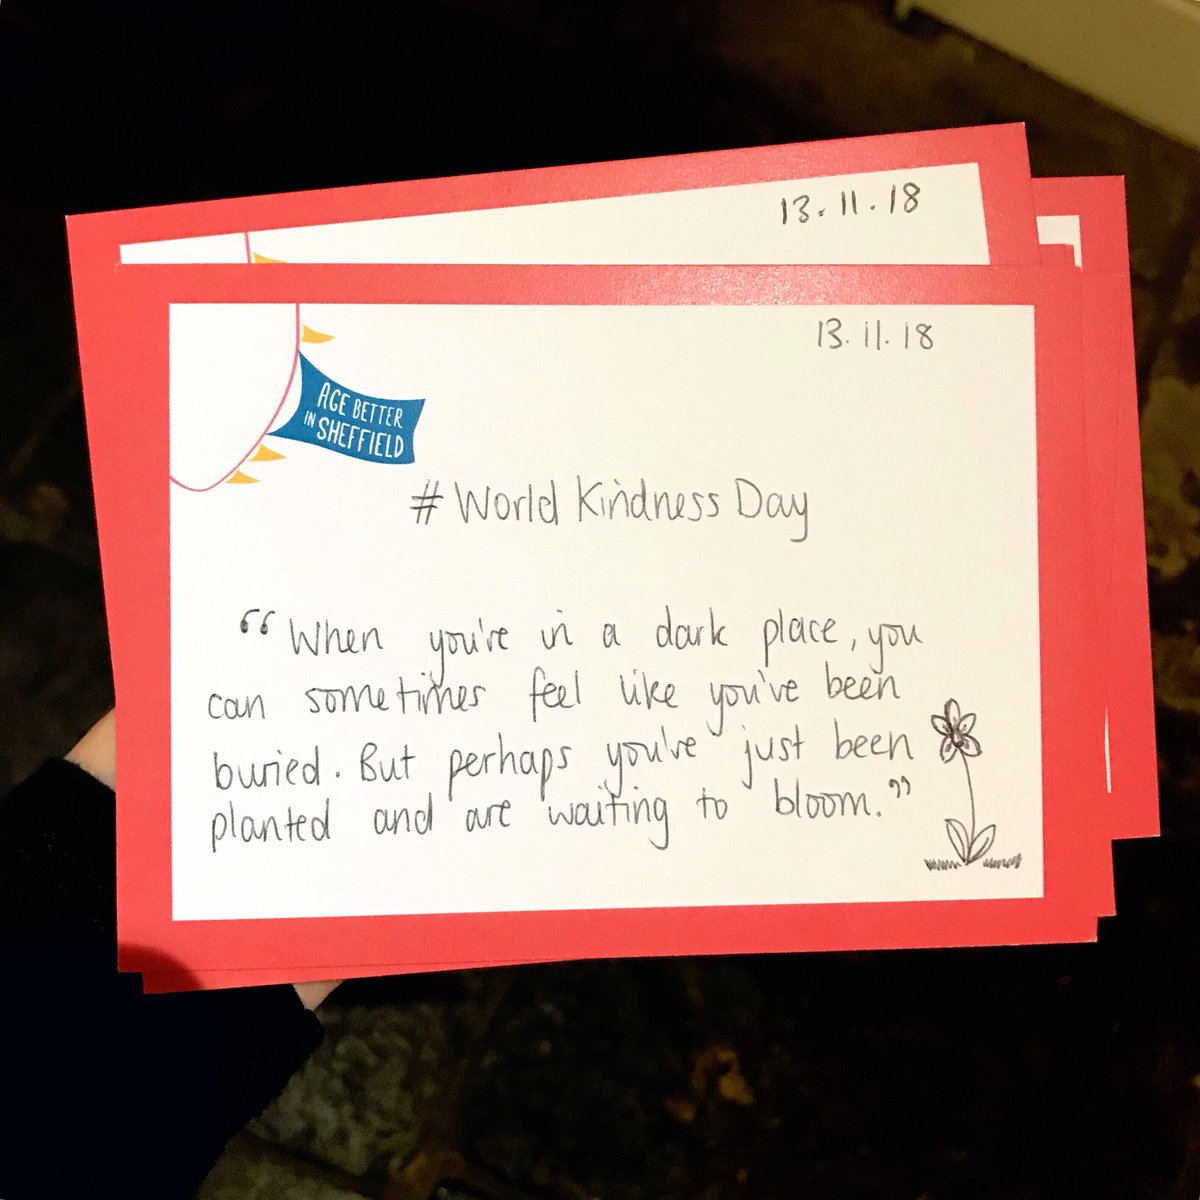 13.11.18
13.11.18
AGE BETTER
IN SHEFFIELD
#World Kindness Day
“When you've in a dark place, you
can sometimes feel like you've been
buried. But perhaps you've just been
planted and are waiting to bloom.”